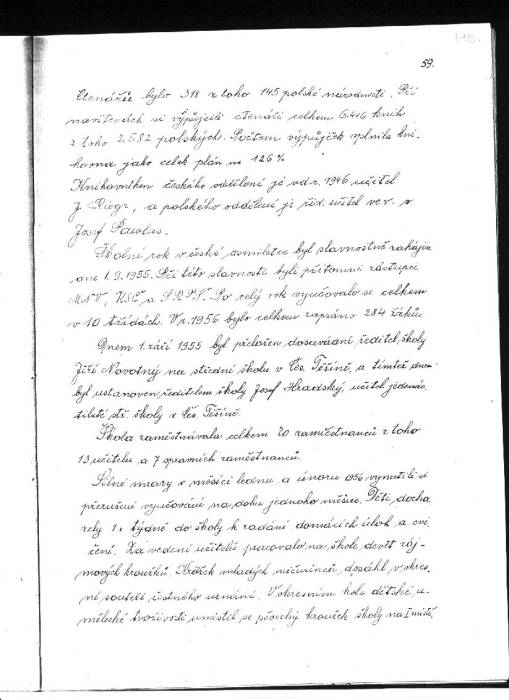 59.
Čtenářů bylo 318 z toho 145 polské národnosti. Při
návštěvách si vypůjčili čtenáři celkem 6.416 knih
z toho 2.582 polských. Počtem výpůjček splnila kni-
hovna jako celek plán na 126 %
Knihovníkem českého oddělení je od r. 1946 učitel
J. Riegr, a polského oddělení je řid. učitel ve v. v
Josef Pawlas.
Školní rok v české osmiletce byl slavnostně zahájen
dne 1.9.1955. Při této slavnosti byli přítomni zástupci
MNV, KSČ a SRPŠ. Po celý rok vyučovalo se celkem
v 10 třídách. V r. 1956 bylo celkem zapsáno 284 žáků.
Dnem 1. září 1955 byl přeložen dosavadní ředitel školy
Jiří Novotný na střední školu v Čes. Těšíně, a tímtéž dnem
byl ustanoven ředitelem školy Josef Hradský, učitel jedenác-
tileté stř. školy v Čes. Těšíně.
Škola zaměstnávala celkem 20 zaměstnanců z toho
13 učitelů a 7 správních zaměstnanců.
Silné mrazy v měsíci lednu a únoru 1956 vynutili si
přerušení vyučování na dobu jednoho měsíce. Děti, dochá-
zely 1x týdně do školy k zadání domácích úloh a cvi-
čení. Za vedení učitelů pracovalo na škole devět záj-
mových kroužků. Kroužek mladých mičurinců, dosáhl v okres-
ní soutěži čestného uznání. V okresním kole dětské u-
mělecké tvořivosti umístil se pěvecký kroužek školy na I místě.